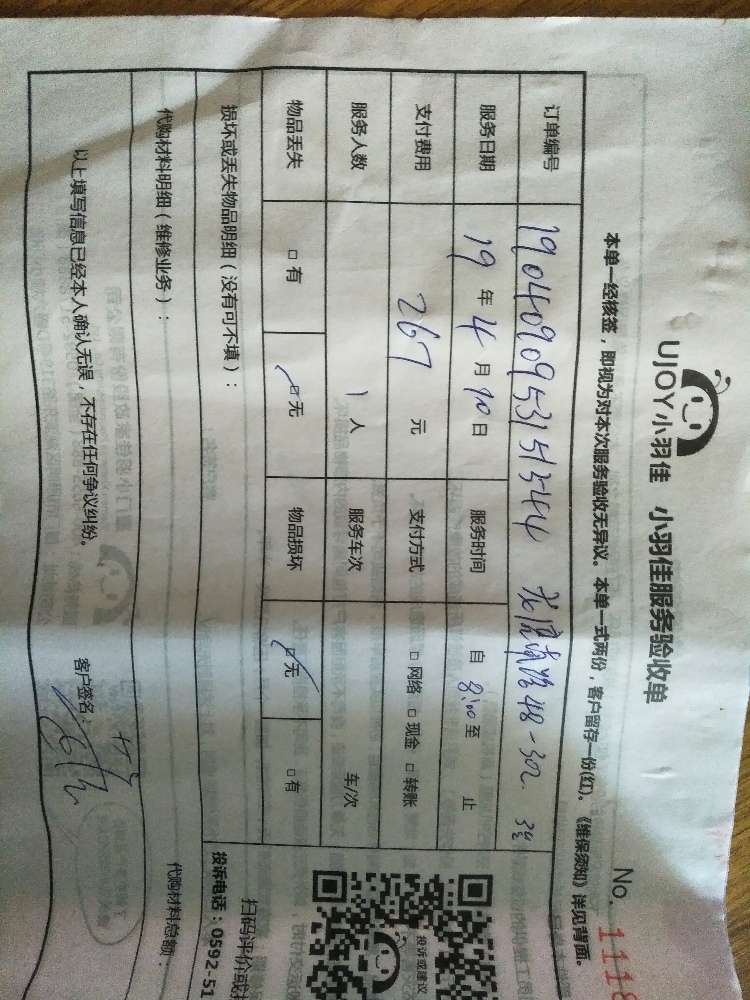 UJOY小羽佳 小羽佳服务验收单
No. 1118
本单一经核签，即视为对本次服务验收无异议。本单一式两份，客户留存一份(红)。《维保须知》详见背面。
订单编号 1904090953151544 48-302
服务日期 19 年 4 月 10 日 服务时间 自 8:00 至 止
支付费用 267 元 支付方式 □ 网络 □ 现金 □ 转账
服务人数 1 人 服务车次 车/次
物品丢失 □ 有 ☑ 无 物品损坏 ☑ 无 □ 有
投诉或建议
扫码评价或
投诉电话：0592-51
损坏或丢失物品明细（没有可不填）：
代购材料明细（维修业务）： 代购材料总额：
以上填写信息已经本人确认无误，不存在任何争议纠纷。 客户签名：